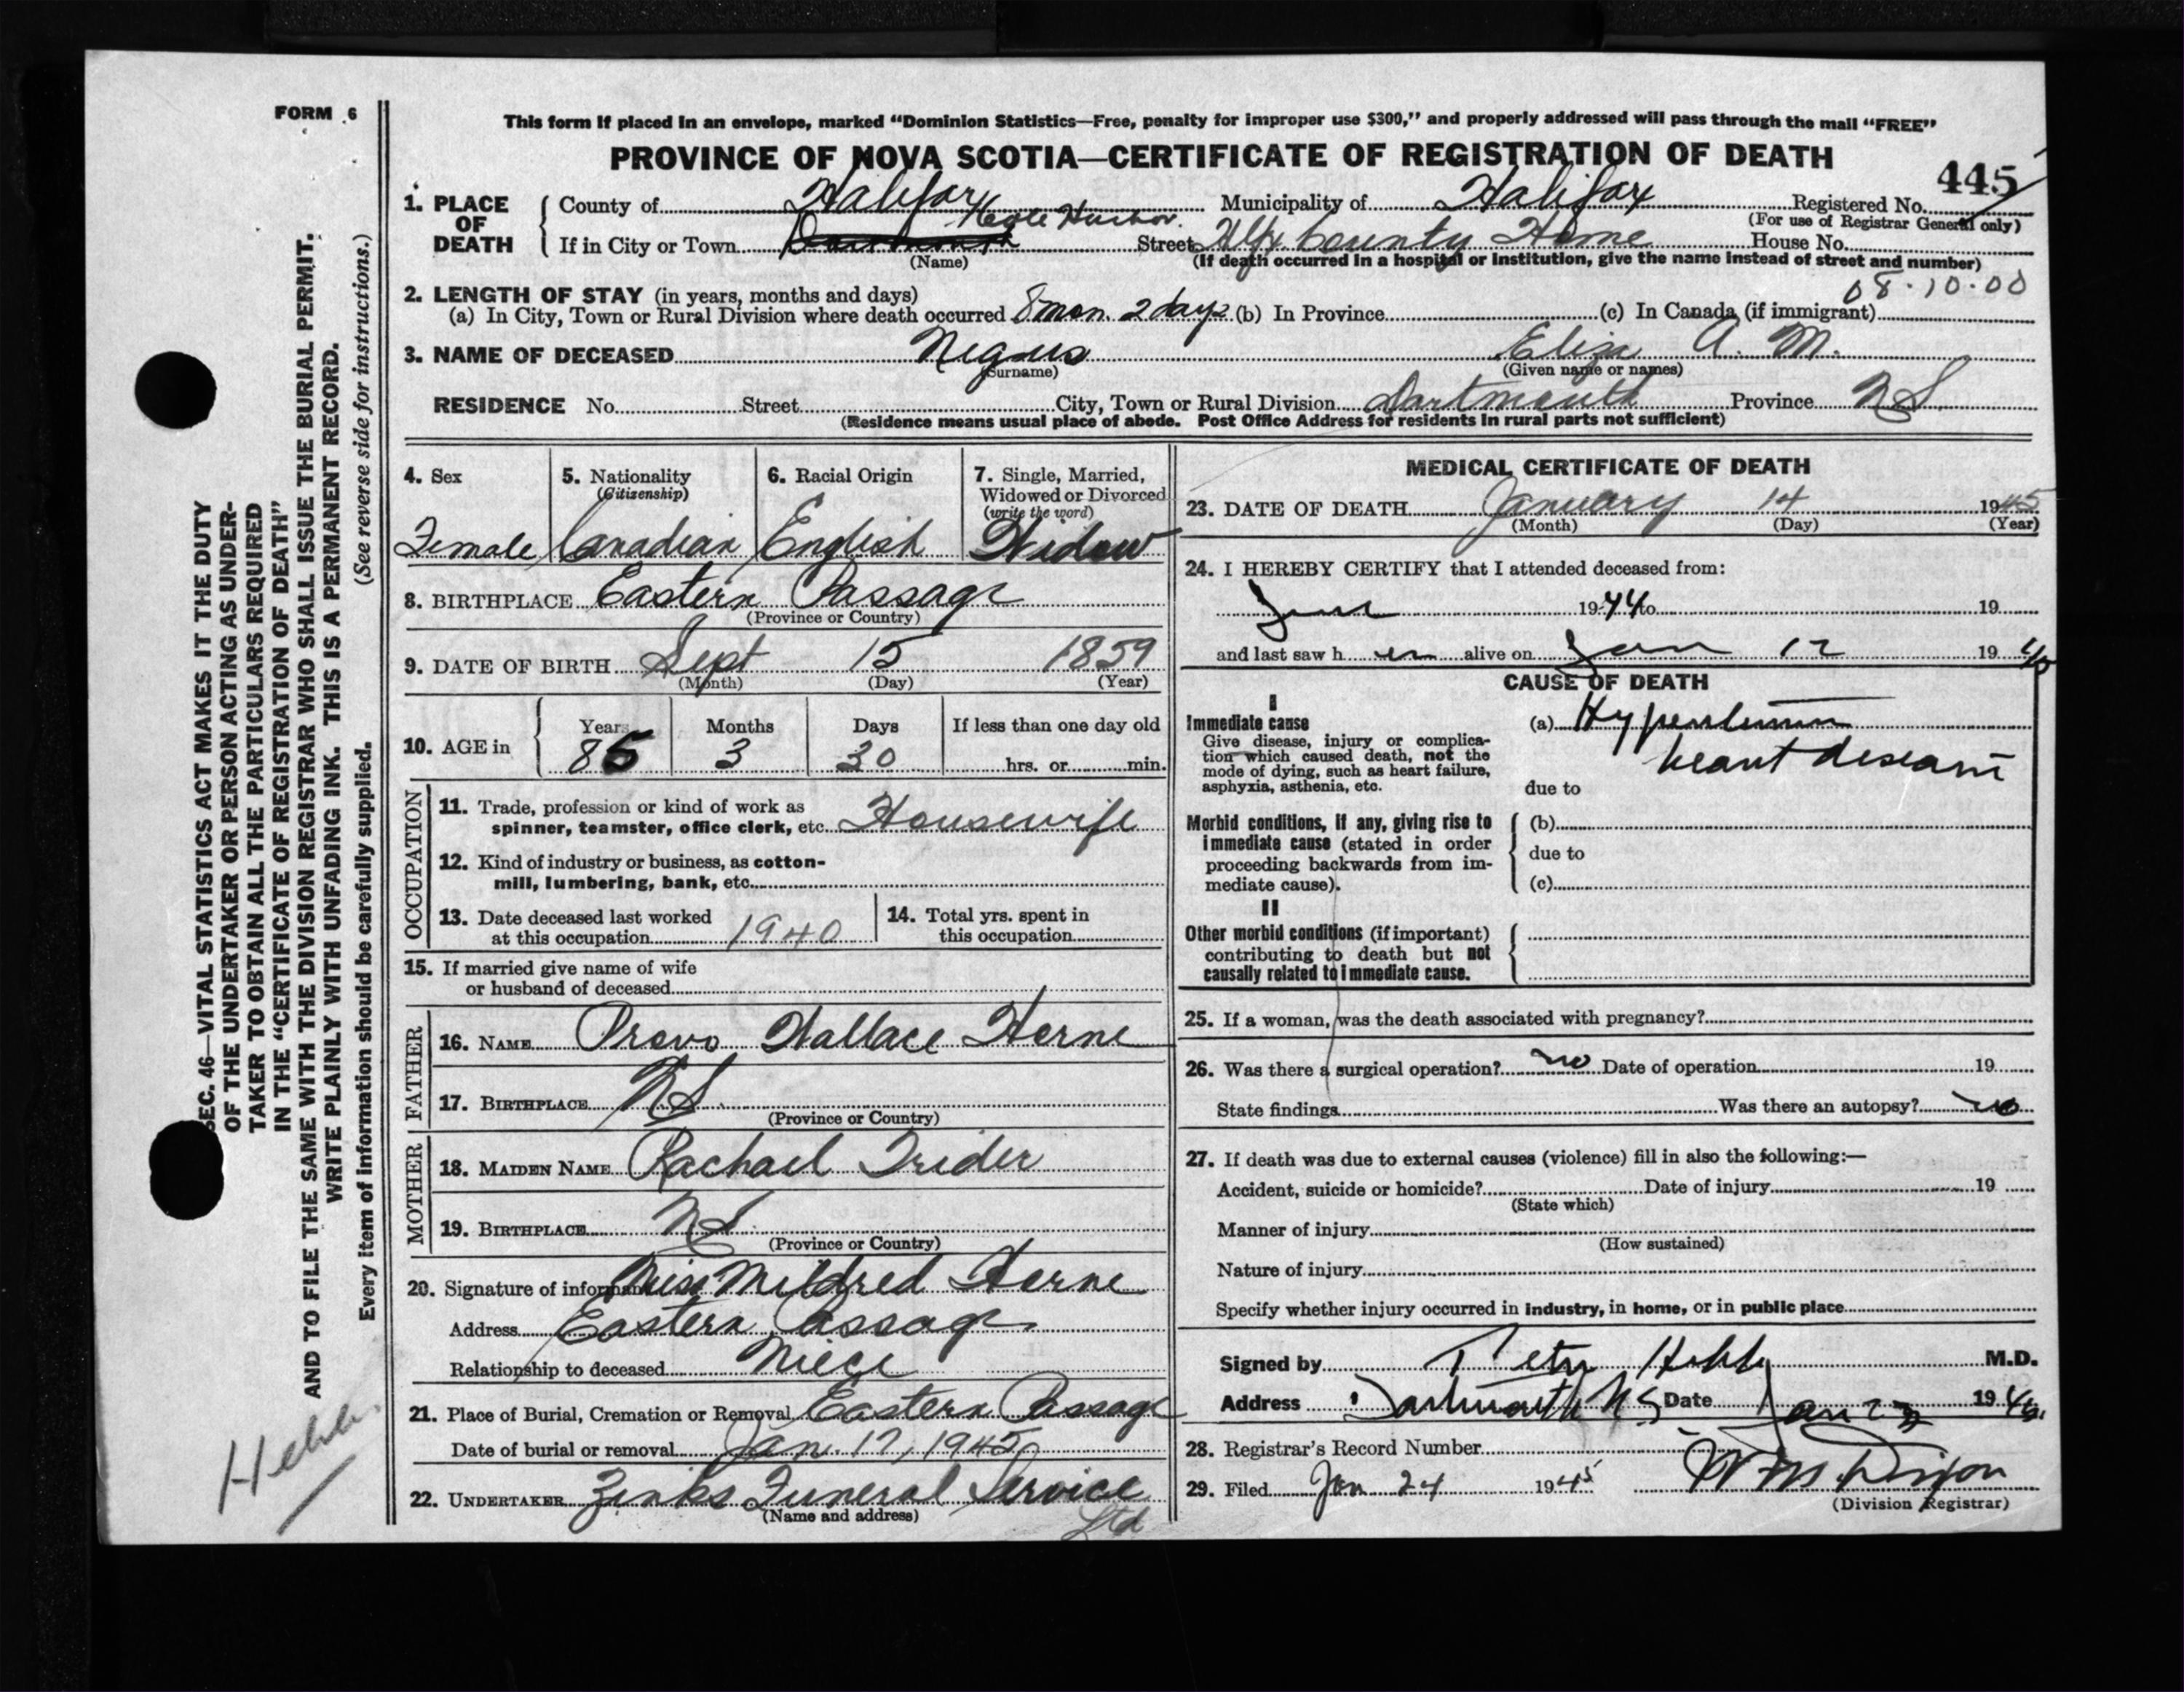 FORM 6
This form if placed in an envelope, marked "Dominion Statistics—Free, penalty for improper use $300," and properly addressed will pass through the mail "FREE"
PROVINCE OF NOVA SCOTIA—CERTIFICATE OF REGISTRATION OF DEATH
445
1. PLACE OF DEATH
County of Halifax Municipality of Halifax Registered No.
(For use of Registrar General only)
If in City or Town Dartmouth Cole Harbor Street Hfx County Home House No.
(Name) (If death occurred in a hospital or institution, give the name instead of street and number)
08.10.00
2. LENGTH OF STAY (in years, months and days)
(a) In City, Town or Rural Division where death occurred 8 mon. 2 days (b) In Province (c) In Canada (if immigrant)
3. NAME OF DECEASED Negus Eliza A. M.
(Surname) (Given name or names)
RESIDENCE No. Street City, Town or Rural Division Dartmouth Province NS
(Residence means usual place of abode. Post Office Address for residents in rural parts not sufficient)
4. Sex
Female
5. Nationality
(Citizenship)
Canadian
6. Racial Origin
English
7. Single, Married,
Widowed or Divorced
(write the word)
Widow
8. BIRTHPLACE Eastern Passage
(Province or Country)
9. DATE OF BIRTH Sept 15 1859
(Month) (Day) (Year)
10. AGE in
Years Months Days If less than one day old
85 3 30 hrs. or min.
OCCUPATION
11. Trade, profession or kind of work as
spinner, teamster, office clerk, etc. Housewife
12. Kind of industry or business, as cotton-
mill, lumbering, bank, etc.
13. Date deceased last worked
at this occupation 1940
14. Total yrs. spent in
this occupation
15. If married give name of wife
or husband of deceased
FATHER
16. NAME Provo Wallace Horne
17. BIRTHPLACE NS
(Province or Country)
MOTHER
18. MAIDEN NAME Rachael Trider
19. BIRTHPLACE NS
(Province or Country)
20. Signature of informant Miss Mildred Horne
Address Eastern Passage
Relationship to deceased Niece
21. Place of Burial, Cremation or Removal Eastern Passage
Date of burial or removal Jan. 17, 1945
22. UNDERTAKER Zinks Funeral Service
(Name and address) Ltd
MEDICAL CERTIFICATE OF DEATH
23. DATE OF DEATH January 14 1945
(Month) (Day) (Year)
24. I HEREBY CERTIFY that I attended deceased from:
June 1944 to 19
and last saw h er alive on Jan 12 19 45
CAUSE OF DEATH
I
Immediate cause
Give disease, injury or complica-
tion which caused death, not the
mode of dying, such as heart failure,
asphyxia, asthenia, etc.
(a) Hypertension
heart disease
due to
Morbid conditions, if any, giving rise to
immediate cause (stated in order
proceeding backwards from im-
mediate cause).
(b)
due to
(c)
II
Other morbid conditions (if important)
contributing to death but not
causally related to immediate cause.
25. If a woman, was the death associated with pregnancy?
26. Was there a surgical operation? no Date of operation 19
State findings Was there an autopsy? no
27. If death was due to external causes (violence) fill in also the following:—
Accident, suicide or homicide? Date of injury 19
(State which)
Manner of injury
(How sustained)
Nature of injury
Specify whether injury occurred in industry, in home, or in public place
Signed by Hebb M.D.
Address Dartmouth N S Date Jan 23 19
28. Registrar's Record Number
29. Filed Jan 24 1945 W M Dixon
(Division Registrar)
SEC. 46—VITAL STATISTICS ACT MAKES IT THE DUTY
OF THE UNDERTAKER OR PERSON ACTING AS UNDER-
TAKER TO OBTAIN ALL THE PARTICULARS REQUIRED
IN THE "CERTIFICATE OF REGISTRATION OF DEATH"
AND TO FILE THE SAME WITH THE DIVISION REGISTRAR WHO SHALL ISSUE THE BURIAL PERMIT.
WRITE PLAINLY WITH UNFADING INK. THIS IS A PERMANENT RECORD.
Every item of information should be carefully supplied. (See reverse side for instructions.)
Hebb.